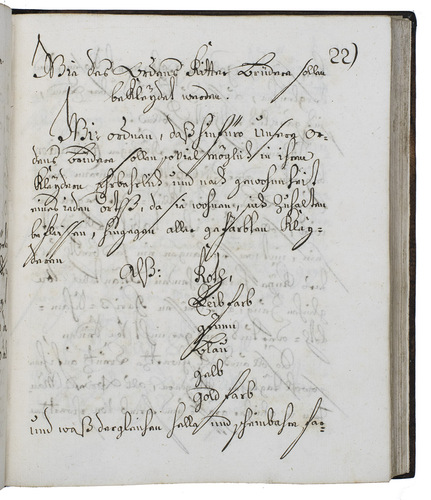 22)
Wie des Ordens Ritter Brüdere sollen
bekleydet werden.
Wir ordnen, daß hinfüro Unsers Or-
dens Brüdere sollen, so viel möglich in ihren
Kleydern Ehrbahrlich und nach gewohnheit
eines jeden Orths, da sie wohnen, sich zuhalten
befleissen, hingegen aller gefärbten Kley-
deren
Alß: Roth,
Leibfarb
grünn
Blau
gelb
goldfarb
und waß dergleichen helle und scheinbahre far-